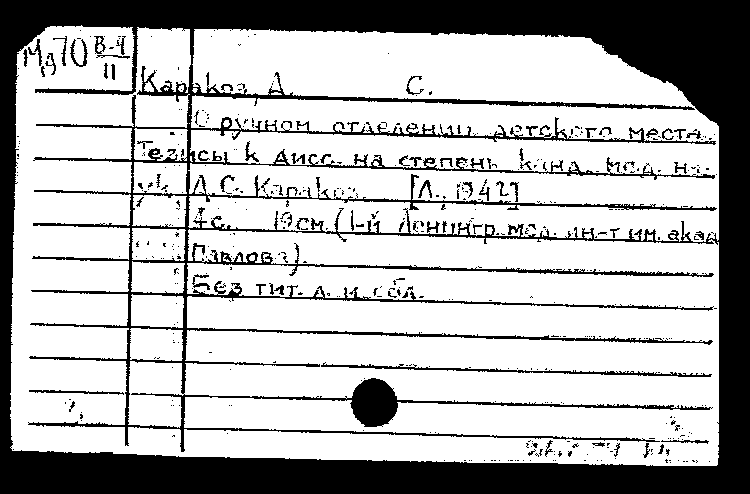 Мд70 В-4
11
Каракоз, А. С.
О ручном отделении детского места.
Тезисы к дисс. на степень канд. мед. на-
ук А.С. Каракоз. [Л., 1942]
4с. 19см. (1-й Ленингр. мед. ин-т им. акад.
Павлова).
Без тит. л. и обл.